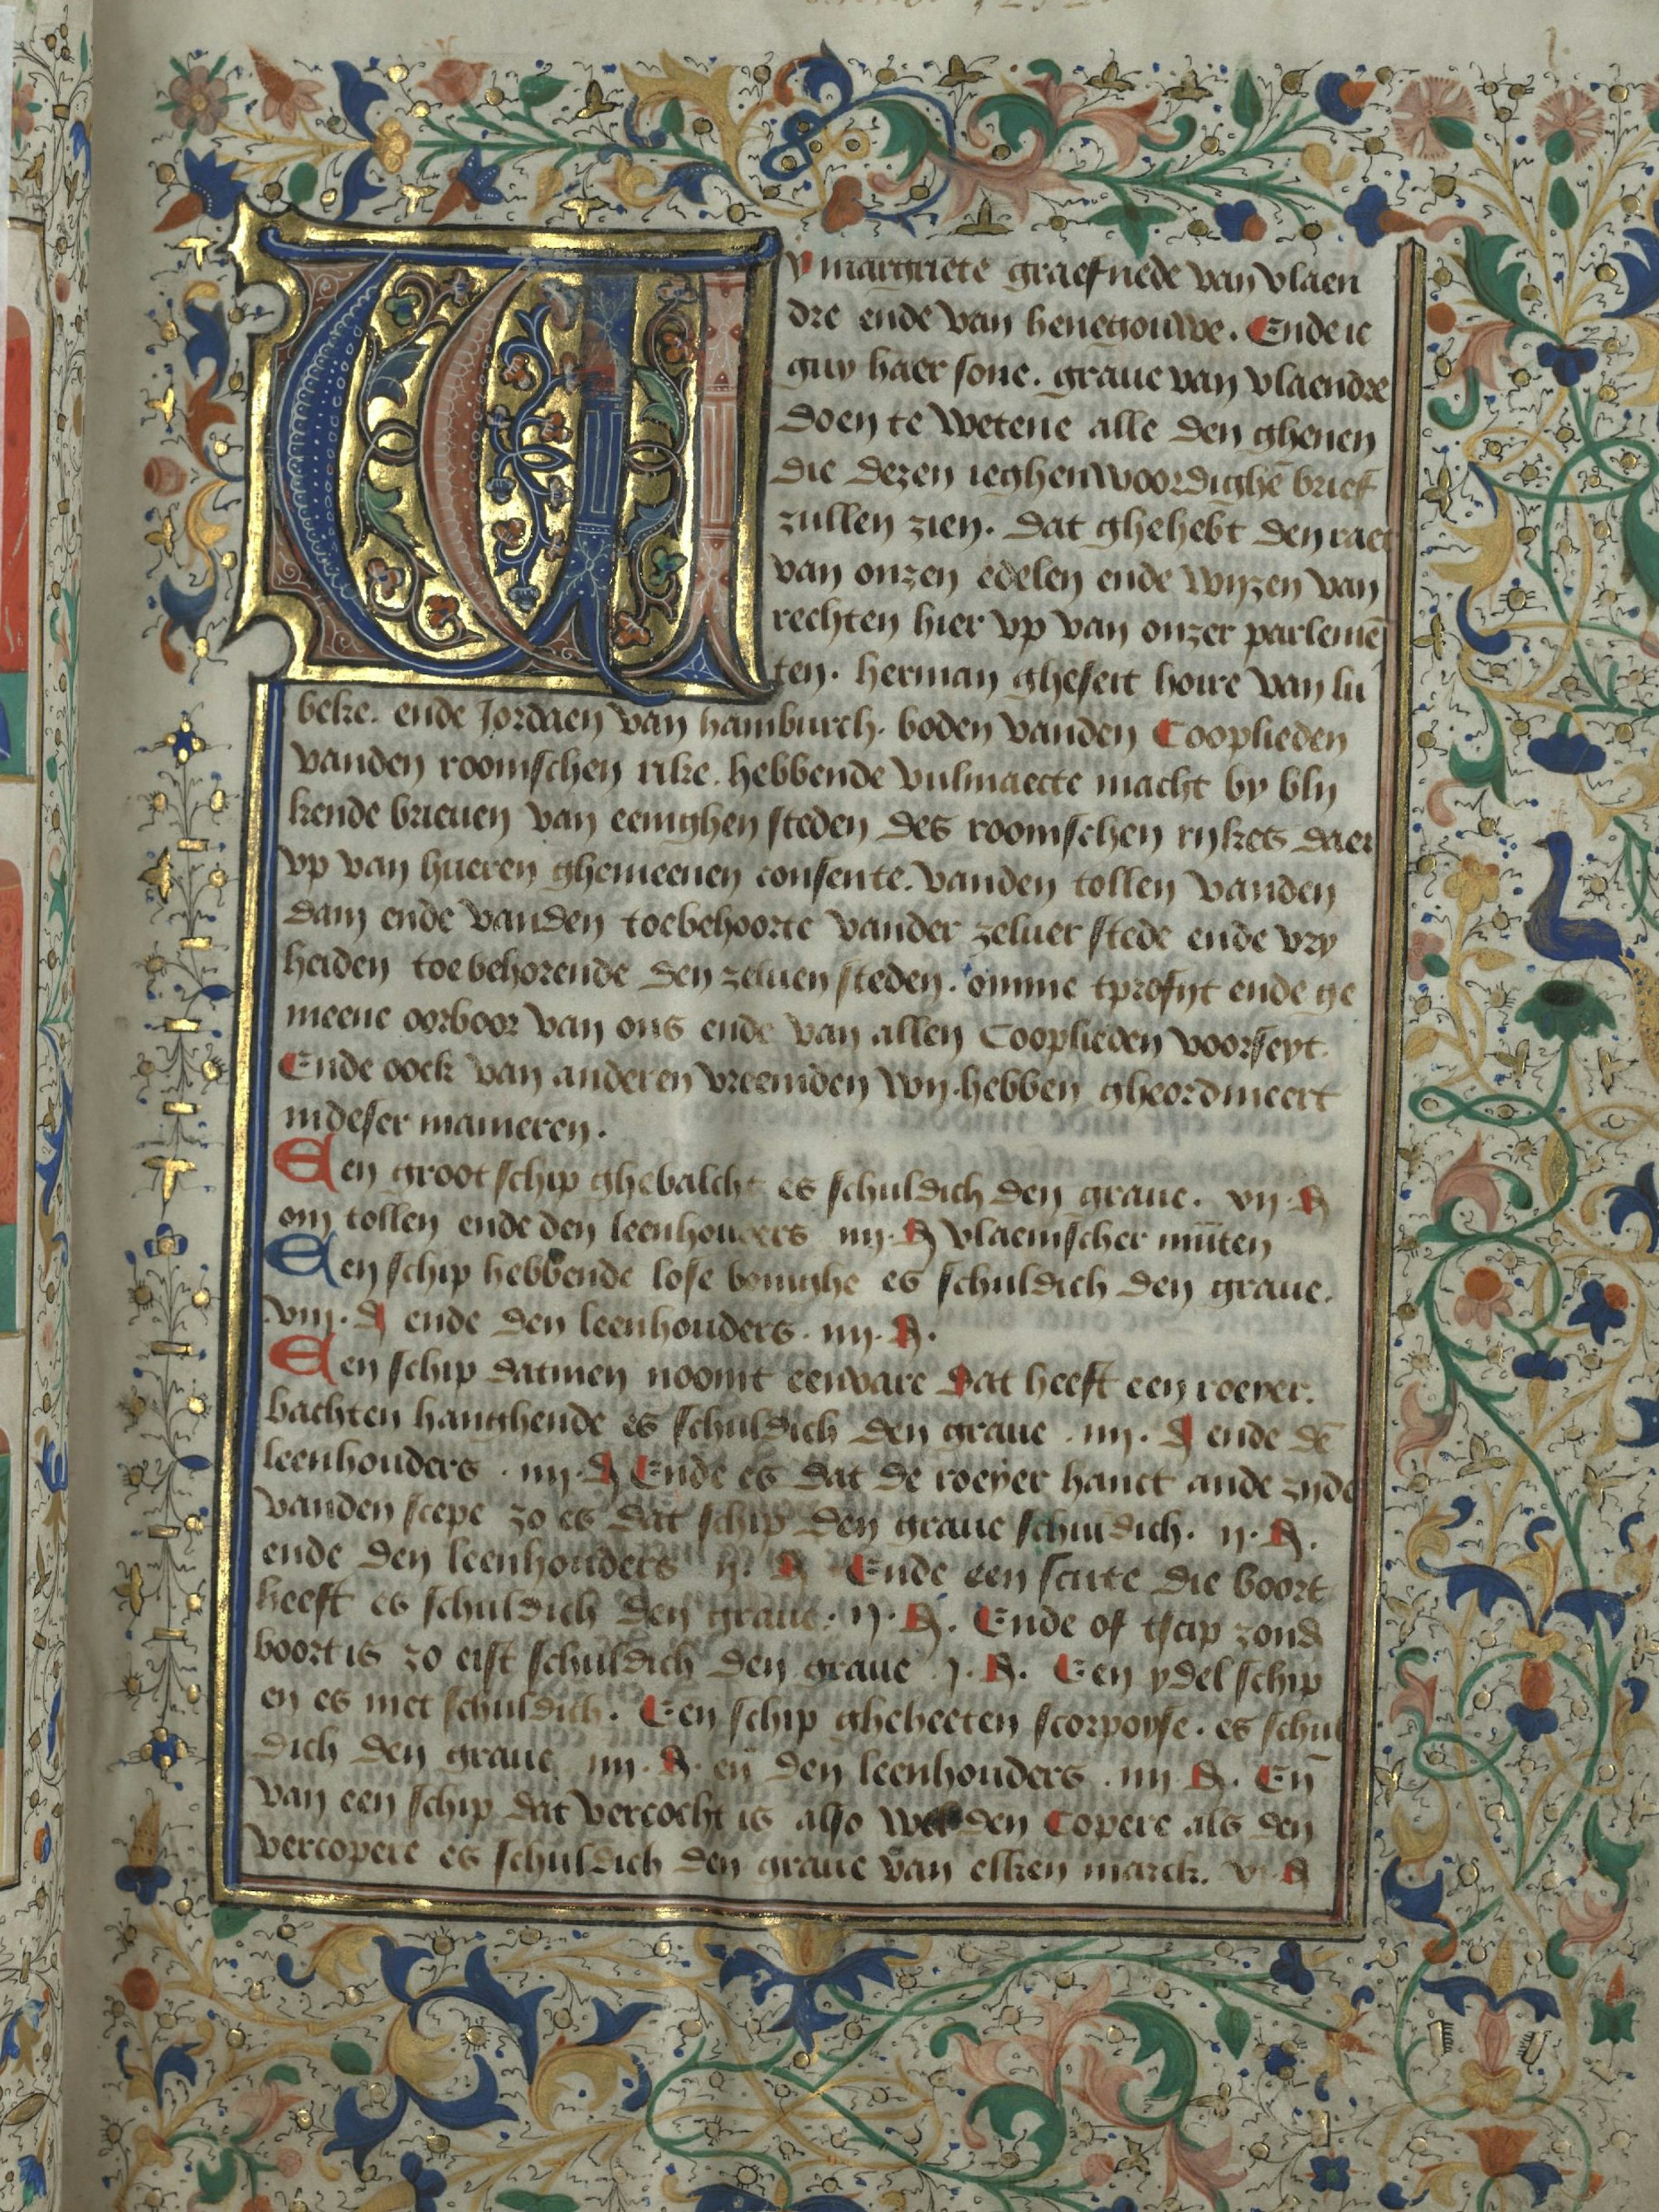 Wy margriete graefnede van vlaen
dre ende van henegouwe. Ende ic
guy haer sone. graue van vlaendre
doen te wetene alle den ghenen
die dezen ieghenwoordighē brief
zullen zien. dat ghehebt den raet
van onzen edelen ende wyzen van
rechten hier vp van onzer parlemē
ten. herman gheseit hoire van lu
beke. ende Jordaen van hamburch. boden vanden Cooplieden
vanden roomschen rike. hebbende vulmaecte macht by bly
kende brieuen van eenighen steden des roomschen rykes daer
vp van hueren ghemeenen consente. vanden tollen vanden
dam ende vanden toebehoorte vander zeluer stede ende vry
heiden toe behorende den zeluen steden. omme tprofyt ende ge
meene oorboor van ons ende van allen Cooplieden voorseyt.
Ende oock van anderen vreemden wy hebben gheordineert
in deser manieren.
Een groot schip ghebalcht es schuldich den graue. vij. d
om tollen ende den leenhouders iiij. d vlaemscher mūten
Een schip hebbende lose boninghe es schuldich den graue.
viij. d ende den leenhouders. iiij. d.
Een schip datmen noomt eenvare dat heeft een roeyer.
bachten hanghende es schuldich den graue. iiij. d ende dē
leenhouders. iiij. d Ende es dat de roeyer hanct ande zyde
vanden scepe zo es dat schip den graue schuldich. ij. d.
ende den leenhouders ij. d Ende een scute die boort
heeft es schuldich den graue. ij. d. Ende of tscip zond
boort is zo eist schuldich den graue j. d. Een ydel schip
en es niet schuldich. Een schip gheheeten scorpoyse. es schul
dich den graue iiij. d. eñ den leenhouders. iiij d. Eñ
van een schip dat vercocht is also wel den Copere als den
vercopere es schuldich den graue van elken marck. vi d